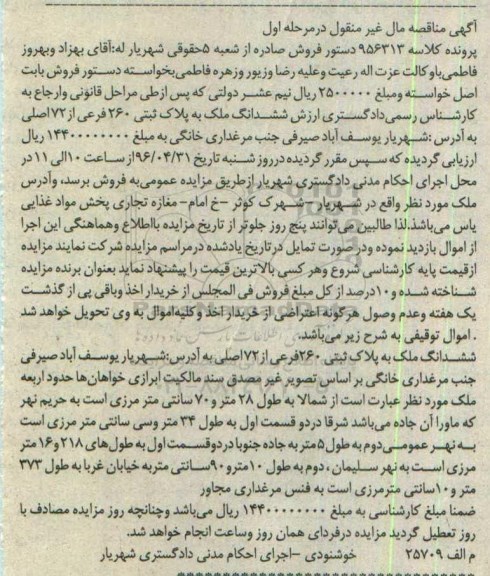 آگهی مناقصه مال غیر منقول درمرحله اول
پرونده کلاسه ۹۵۶۳۱۳ دستور فروش صادره از شعبه ۵حقوقی شهریار له:آقای بهزاد وبهروز
فاطمی‌باوکالت عزت اله رعیت وعلیه رضا وزیور وزهره فاطمی‌بخواسته دستور فروش بابت
اصل خواسته ومبلغ ۲۵۰۰۰۰۰ ریال نیم عشر دولتی که پس ازطی مراحل قانونی وارجاع به
کارشناس رسمی‌دادگستری ارزش ششدانگ ملک به پلاک ثبتی ۲۶۰ فرعی از۷۲اصلی
به آدرس :شهریار یوسف آباد صیرفی جنب مرغداری خانگی به مبلغ ۱۴۴۰۰۰۰۰۰۰۰ ریال
ارزیابی گردیده که سپس مقرر گردیده درروز شنبه تاریخ ۹۶/۰۴/۳۱از ساعت ۱۰الی ۱۱ در
محل اجرای احکام مدنی دادگستری شهریار ازطریق مزایده عمومی‌به فروش برسد، وآدرس
ملک مورد نظر واقع در شهریار –شهرک کوثر –خ امام– مغازه تجاری پخش مواد غذایی
یاس می‌باشد.لذا طالبین می‌توانند پنج روز جلوتر از تاریخ مزایده بااطلاع وهماهنگی این اجرا
از اموال بازدید نموده ودر صورت تمایل در تاریخ یادشده درمراسم مزایده شرکت نمایند مزایده
ازقیمت پایه کارشناسی شروع وهر کسی بالاترین قیمت را پیشنهاد نماید بعنوان برنده مزایده
شناخته شده و۱۰درصد از کل مبلغ فروش فی المجلس از خریدار اخذ وباقی پی از گذشت
یک هفته وعدم وصول هرگونه اعتراضی از خریدار اخذ وکلیه‌اموال به وی تحویل خواهد شد
. اموال توقیفی به شرح زیر می‌باشد.
ششدانگ ملک به پلاک ثبتی ۲۶۰فرعی از۷۲اصلی به آدرس:شهریار یوسف آباد صیرفی
جنب مرغداری خانگی بر اساس تصویر غیر مصدق سند مالکیت ابرازی خواهان‌ها حدود اربعه
ملک مورد نظر عبارت است از شمالا به طول ۲۸ متر و۷۰ سانتی متر مرزی است به حریم نهر
که ماورا آن جاده می‌باشد شرقا دردو قسمت اول به طول ۳۴ متر وسی سانتی متر مرزی است
به نهر عمومی‌دوم به طول۵متر به جاده جنوبا دردوقسمت اول به طول های ۲۱۸ و۱۶ متر
مرزی است به نهر سلیمان ، دوم به طول ۱۰مترو ۹۰سانتی متربه خیابان غربا به طول ۳۷۳
متر و۱۰سانتی مترمرزی است به فنس مرغداری مجاور
ضمنا مبلغ کارشناسی به مبلغ ۱۴۴۰۰۰۰۰۰۰۰ ریال می‌باشد وچنانچه روز مزایده مصادف با
روز تعطیل گردید مزایده درفردای همان روز وساعت انجام خواهد شد.
م الف ۲۵۷۰۹ خوشنودی –اجرای احکام مدنی دادگستری شهریار